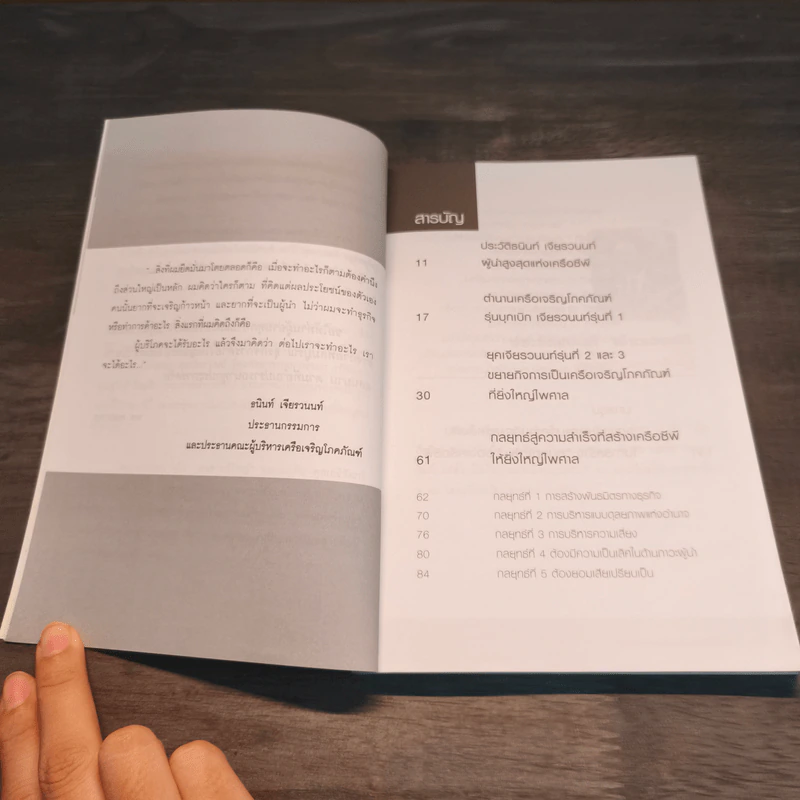 "...สิ่งที่ผมยึดมั่นมาโดยตลอดก็คือ เมื่อจะทำอะไรก็ตามต้องคำนึง
ถึงส่วนใหญ่เป็นหลัก ผมคิดว่าใครก็ตาม ที่คิดแต่ผลประโยชน์ของตัวเอง
คนนั้นยากที่จะเจริญก้าวหน้า และยากที่จะเป็นผู้นำ ไม่ว่าผมจะทำธุรกิจ
หรือทำการค้าอะไร สิ่งแรกที่ผมคิดถึงก็คือ
ผู้บริโภคจะได้รับอะไร แล้วจึงมาคิดว่า ต่อไปเราจะทำอะไร เรา
จะได้อะไร..."
ธนินท์ เจียรวนนท์
ประธานกรรมการ
และประธานคณะผู้บริหารเครือเจริญโภคภัณฑ์
สารบัญ
ประวัติธนินท์ เจียรวนนท์
11 ผู้นำสูงสุดแห่งเครือซีพี
ตำนานเครือเจริญโภคภัณฑ์
17 รุ่นบุกเบิก เจียรวนนท์รุ่นที่ 1
ยุคเจียรวนนท์รุ่นที่ 2 และ 3
ขยายกิจการเป็นเครือเจริญโภคภัณฑ์
30 ที่ยิ่งใหญ่ไพศาล
กลยุทธ์สู่ความสำเร็จที่สร้างเครือซีพี
61 ให้ยิ่งใหญ่ไพศาล
62 กลยุทธ์ที่ 1 การสร้างพันธมิตรทางธุรกิจ
70 กลยุทธ์ที่ 2 การบริหารแบบดุลยภาพแห่งอำนาจ
76 กลยุทธ์ที่ 3 การบริหารความเสี่ยง
80 กลยุทธ์ที่ 4 ต้องมีความเป็นเลิศในด้านภาวะผู้นำ
84 กลยุทธ์ที่ 5 ต้องยอมเสียเปรียบเป็น